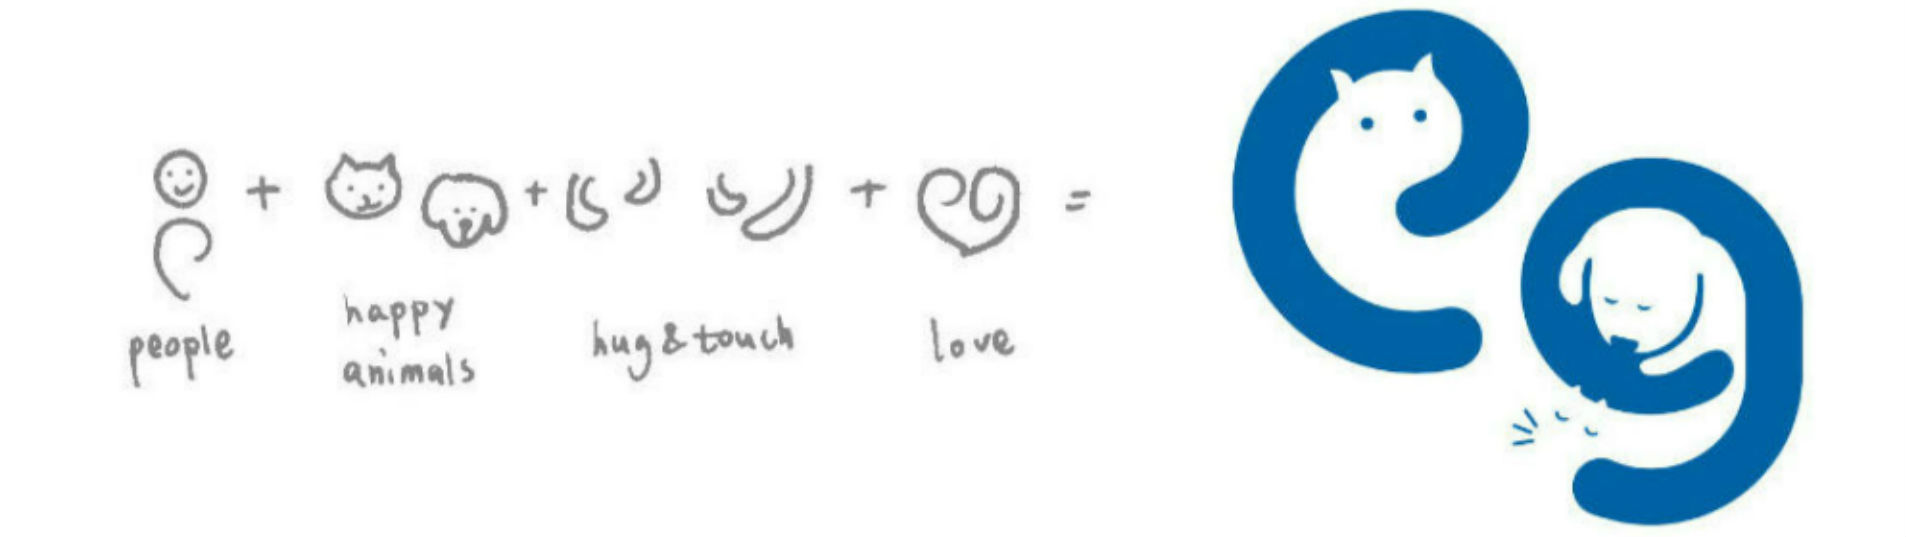 + + + =
people
happy
animals
hug & touch
love
eg